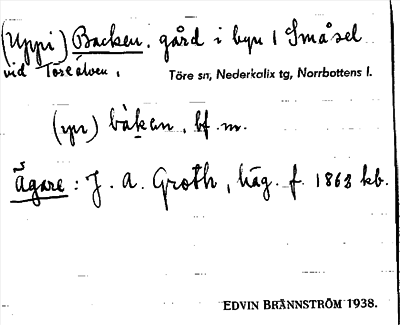 (Uppi) Backen. gård i byn i Småsel
vid Töreälven. Töre sn, Nederkalix tg, Norrbottens l.
(yr) bàkan, bf. m.
Ägare: J. A. Groth, häg. f. 1863 kb.
EDVIN BRÄNNSTRÖM 1938.